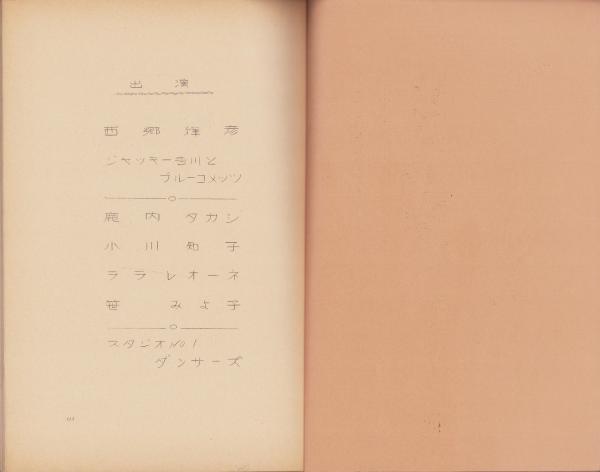 出演
西郷輝彦
ジャッキー吉川と
ブルーコメッツ
鹿内タカシ
小川知子
ララレオーネ
笹みよ子
スタジオNO1
ダンサーズ